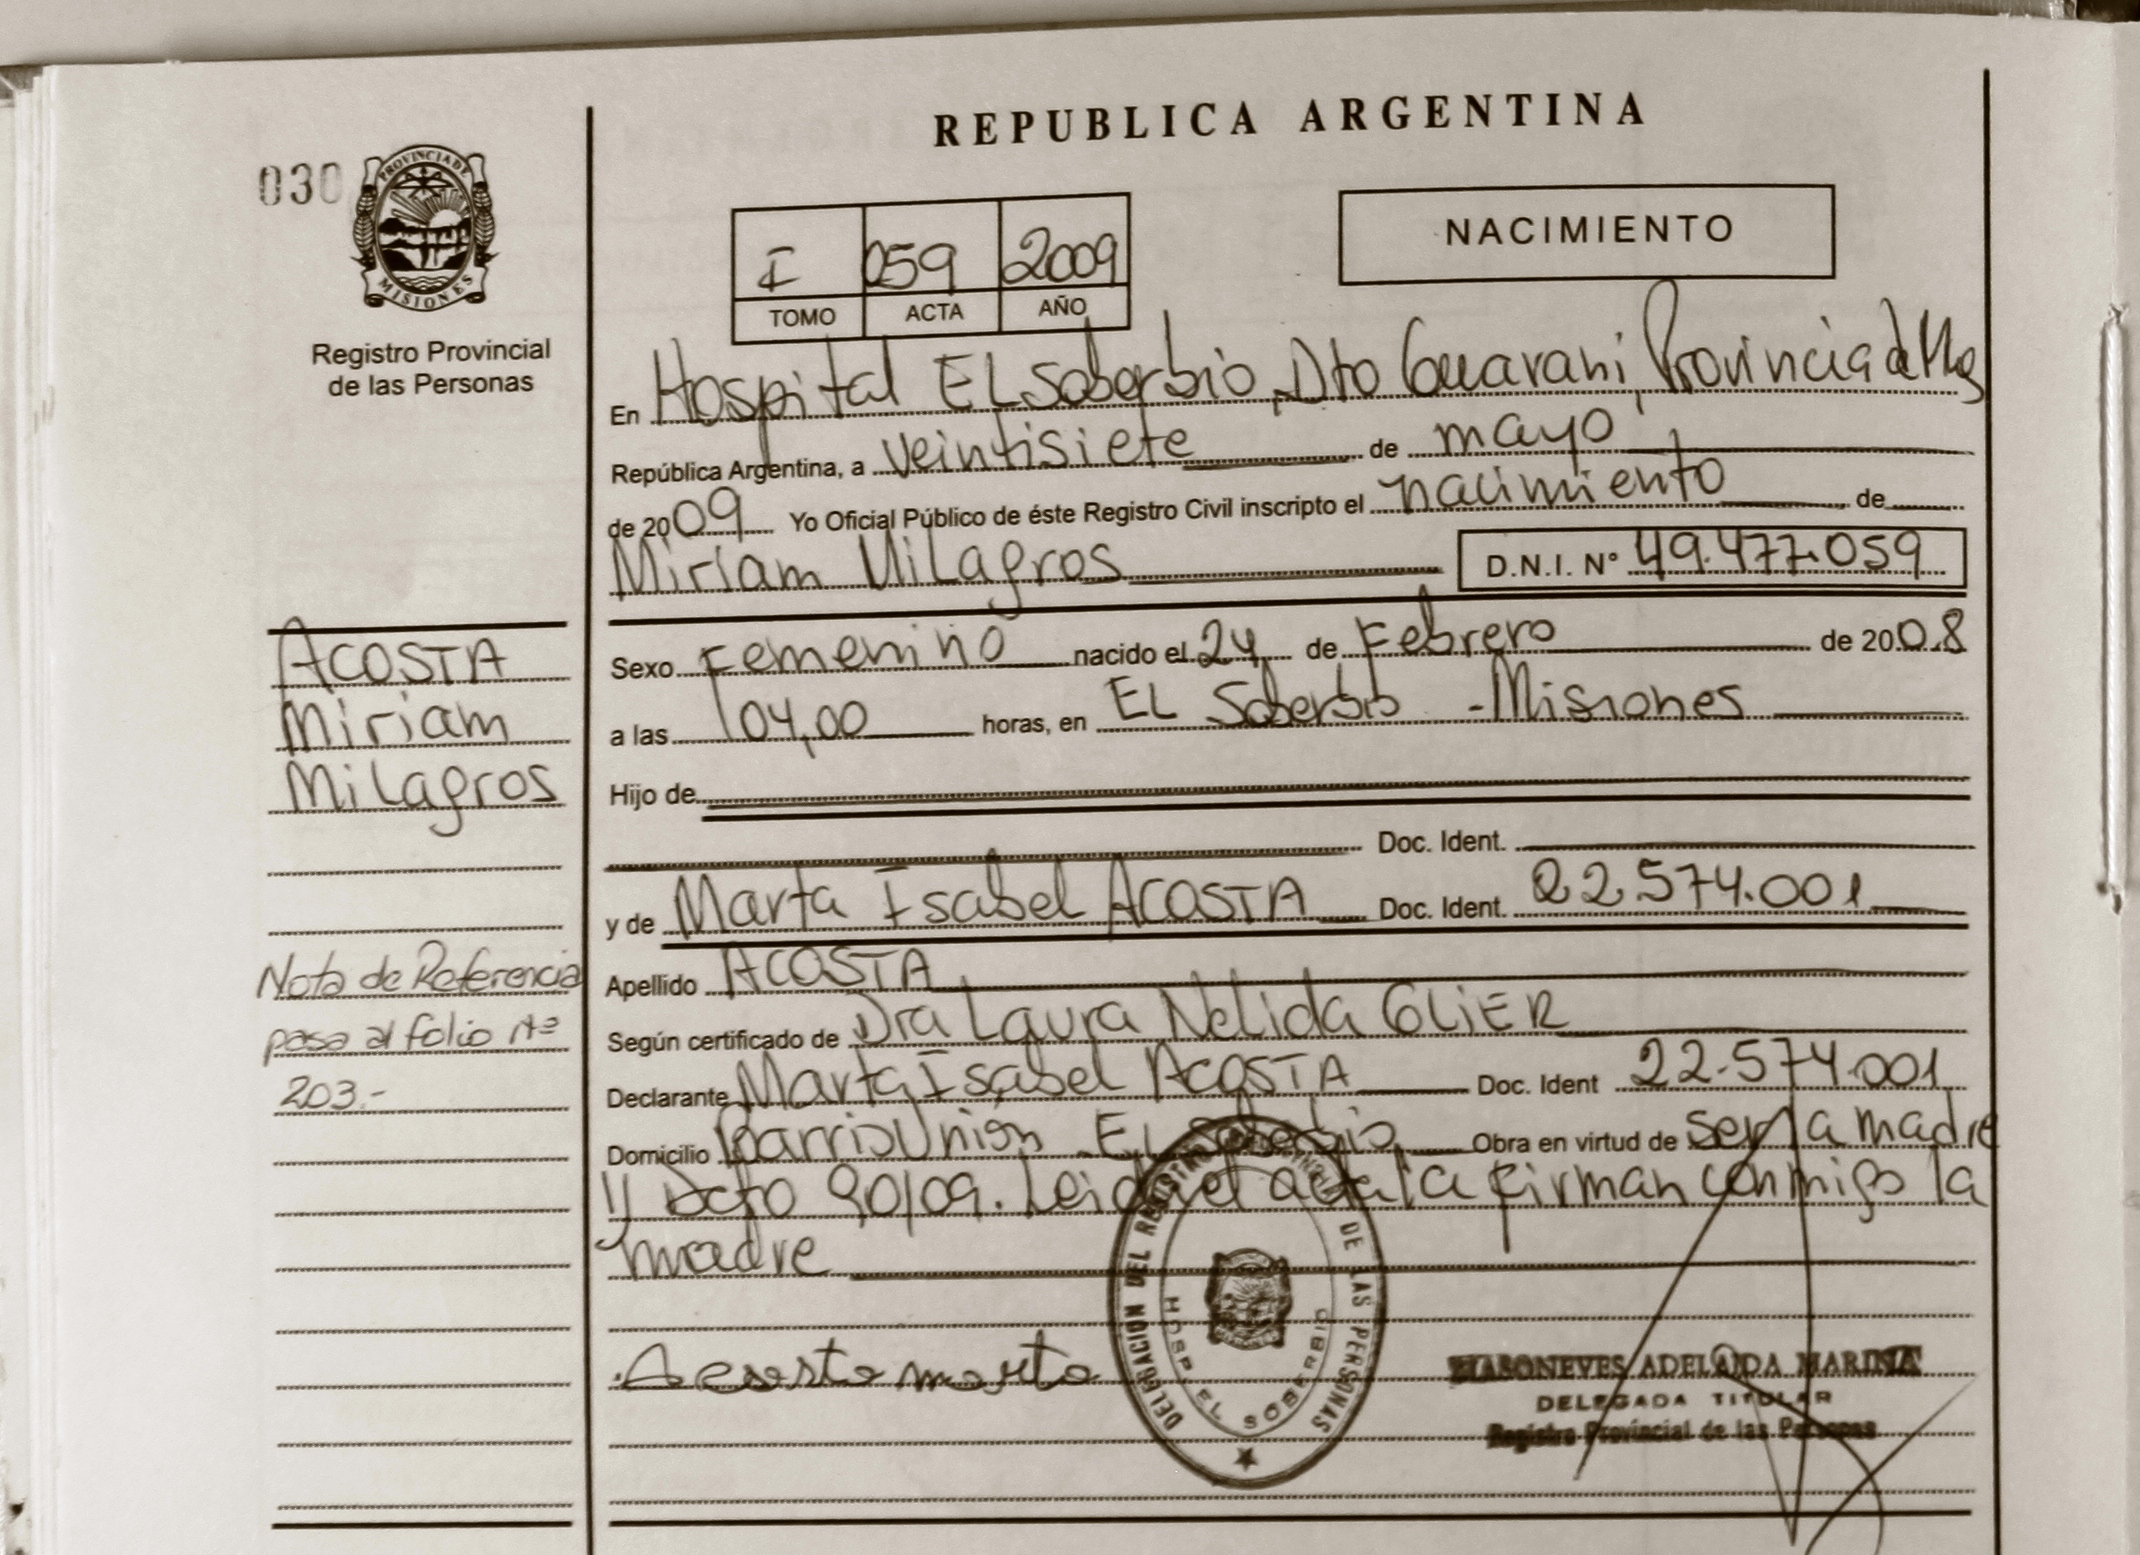 REPUBLICA ARGENTINA
030
PROVINCIA DE
MISIONES
Registro Provincial
de las Personas
I 059 2009
TOMO ACTA AÑO
NACIMIENTO
En Hospital EL Soberbio, Dto Guarani, Provincia de Mnes
República Argentina, a veintisiete de mayo
de 2009 Yo Oficial Público de éste Registro Civil inscripto el nacimiento de
Miriam Milagros D.N.I. Nº 49.477.059
ACOSTA
Miriam
Milagros
Sexo Femenino nacido el 24 de Febrero de 2008
a las 04,00 horas, en EL Soberbio - Misiones
Hijo de
Doc. Ident.
y de Marta Isabel ACOSTA Doc. Ident. 22.574.001
Nota de Referencia
pasa al folio nº
203.-
Apellido ACOSTA
Según certificado de Dra Laura Nelida GLIER
Declarante Marta Isabel ACOSTA Doc. Ident 22.574.001
Domicilio Barrio Unión EL Soberbio Obra en virtud de ser la madre
y Dcto 90/09. Leida el acta la firman conmigo la
madre
Acosta marta
DELEGACION DEL REGISTRO PROVINCIAL DE LAS PERSONAS
HOSP. EL SOBERBIO
MASONEVES ADELAIDA MARINA
DELEGADA TITULAR
Registro Provincial de las Personas